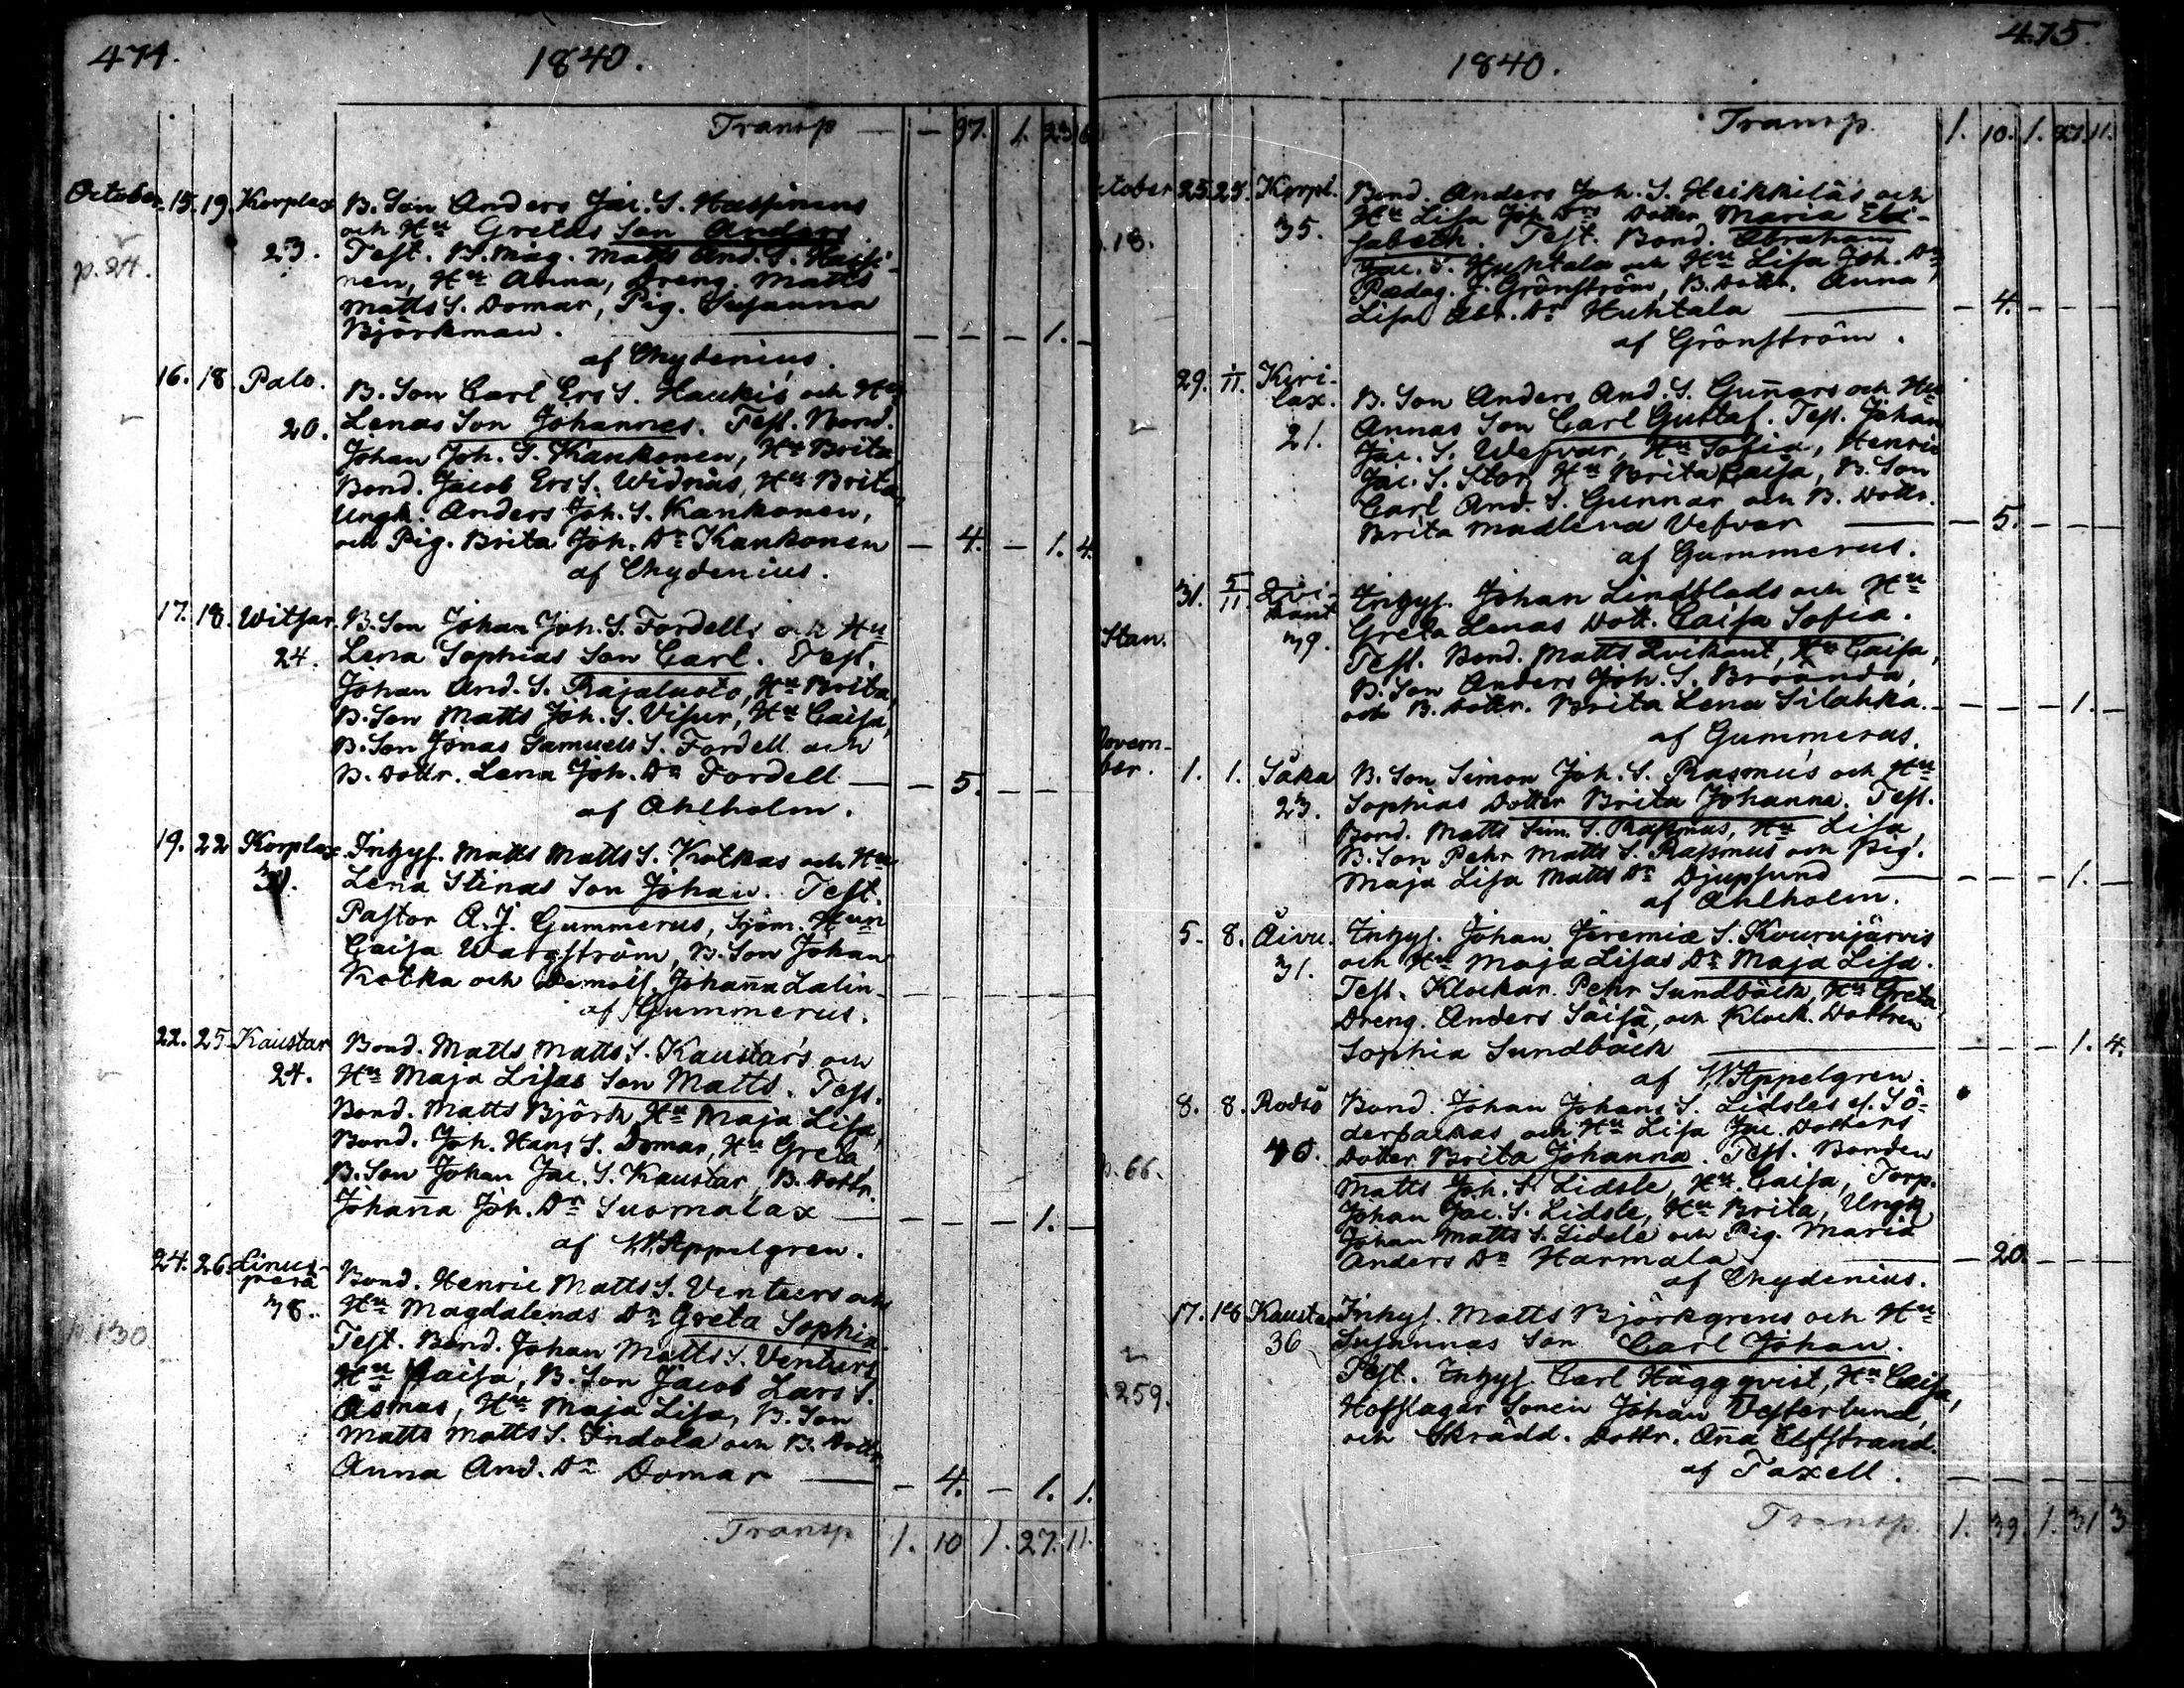 474.
1840.
Transp — — 37. 1. 23
October 15. 19. Korplax B. Son Anders Jac. S. Hassinens
och Hu Gretas Son Anders
23. Test. B. Mag. Matts And. S. Hassi-
p. 24.
nen, Hu Anna, Dreng. Matts
Matts S. Domar, Pig. Susanna
Björkman. — — — — 1. —
af Chydenius.
16. 18. Palo. B. Son Carl Ers S. Haukis och Hu
20. Lenas Son Johannes. Test. Bond.
Johan Joh. S. Kankonen, Hu Brita
Bond. Jacob Ers S. Widnäs, Hu Brita,
Ungk. Anders Joh. S. Kankonen,
och Pig. Brita Joh. Dr Kankonen — 4. — 1. 4.
af Chydenius.
17. 18. Witsar. B. Son Johan Joh. S. Fordells och Hu
24. Lena Sophias Son Carl. Test.
Johan And. S. Rajaluoto, Hu Brita,
B. Son Matts Joh. S. Visur, Hu Caisa,
B. Son Jonas Samuels S. Fordell och
B. Dottr. Lena Joh. Dr Fordell — — 5. — — —
af Ahlholm.
19. 22. Korplax Inhys. Matts Matts S. Kotkas och Hu
Lena Stinas Son Johan. Test.
Pastor A. J. Gummerus, Sjöm. Hun
Caisa Wargström, B. Son Johan
Kotka och Demois. Johan̄a Lalin — — — — —
af Gummerus.
22. 25. Kaustar Bond. Matts Matts S. Kaustars och
24. Hu Maja Lisas Son Matts. Test.
Bond. Matts Björk, Hu Maja Lisa,
Bond. Joh. Hans S. Domar, Hu Greta
B. Son Johan Jac. S. Kaustar, B. Dottr.
Johan̄a Joh. Dr Suomalax — — — — 1. —
af W. Appelgren.
24. 26. Linus-
perä Bond. Henric Matts S. Ventuers och
38. Hu Magdalenas Dr Greta Sophia.
p. 130
Test. Bond. Johan Matts S. Ventuers
Hu Caisa, B. Son Jacob Lars S.
Åsmus, Hu Maja Lisa, B. Son
Matts Matts S. Indola och B. Dottr
Anna And. Dr Domar — — 4. — 1. 1.
Transp 1. 10 1. 27. 11.
475.
1840.
Transp. 1. 10. 1. 27. 11.
ctober 25. 25. Korpl. Bond. Anders Joh. S. Heikkiläs och
.18. 35. Hu Lisa Joh. Drs Dotter Maria Eli-
sabeth. Test. Bond. Abraham
Jac. S. Huhtala och Hu Lisa Joh. Dr,
Pædag. J. Grönström, B. Dottr. Anna
Lisa Abr. Dr Huhtala — — 4. — — —
af Grönström.
29. 1/11. Kiri-
lax. B. Son Anders And. S. Gun̄ars och Hu
21. Annas Son Carl Gustaf. Test. Johan
Jac. S. Wefvar, Hu Sofia, Henric
Jac. S. Stor, Hu Brita Caisa, B. Son
Carl And. S. Gunnar och B. Dottr.
Brita Madlena Vefvar — — 5. — — —
af Gummerus.
31. 5/11. Qvi-
kant Inhys. Johan Lindblads och Hu
Stan. 39. Greta Lenas Dott. Caisa Sofia.
Test. Bond. Matts Qvikant, Hu Caisa,
B. Son Anders Joh. S. Broända,
och B. Dottr. Brita Lena Silahka. — — — 1. —
af Gummerus.
Novem-
ber. 1. 1. Såka B. Son Simon Joh. S. Rasmus och Hu
23. Sophias Dotter Brita Johanna. Test.
Bond. Matts Sim. S. Rasmus, Hu Lisa,
B. Son Pehr Matts S. Rasmus och Pig.
Maja Lisa Matts Dr Djupsund — — — — 1. —
af Ahlholm.
5. 8. Åivu. Inhys. Johan Jeremiæ S. Kourujärvis
31. och Hu Maja Lisas Dr Maja Lisa.
Test. Klockar. Pehr Sundbäck, Hu Greta
Dreng. Anders Säisä, och Klock. Dottren
Sophia Sundbäck — — — — 1. 4.
af W. Appelgren.
8. 8. Rodsö Bond. Johan Johans S. Lidsles el. Sö-
derbackas och Hu Lisa Jac. Dotters
p. 66. 40. Dotter Brita Johanna. Test. Bonden
Matts Joh. S. Lidsle, Hu Caisa, Torp.
Johan Jac. S. Lidsle, Hu Brita, Ungk.
Johan Matts S. Lidsle och Pig. Maria
Anders Dr Harmala — — 20. — — —
af Chydenius.
17. 18 Kaustar Inhys. Matts Björkgrens och Hu
36 Susannas Son Carl Johan.
259. Test. Inhys. Carl Häggqvist, Hu Caisa,
Hofslagar Sonen Johan Vesterlund,
och Skrädd. Dottr. An̄a Elfstrand.
af Taxell. — — — — —
Transp. 1. 39. 1. 31 3